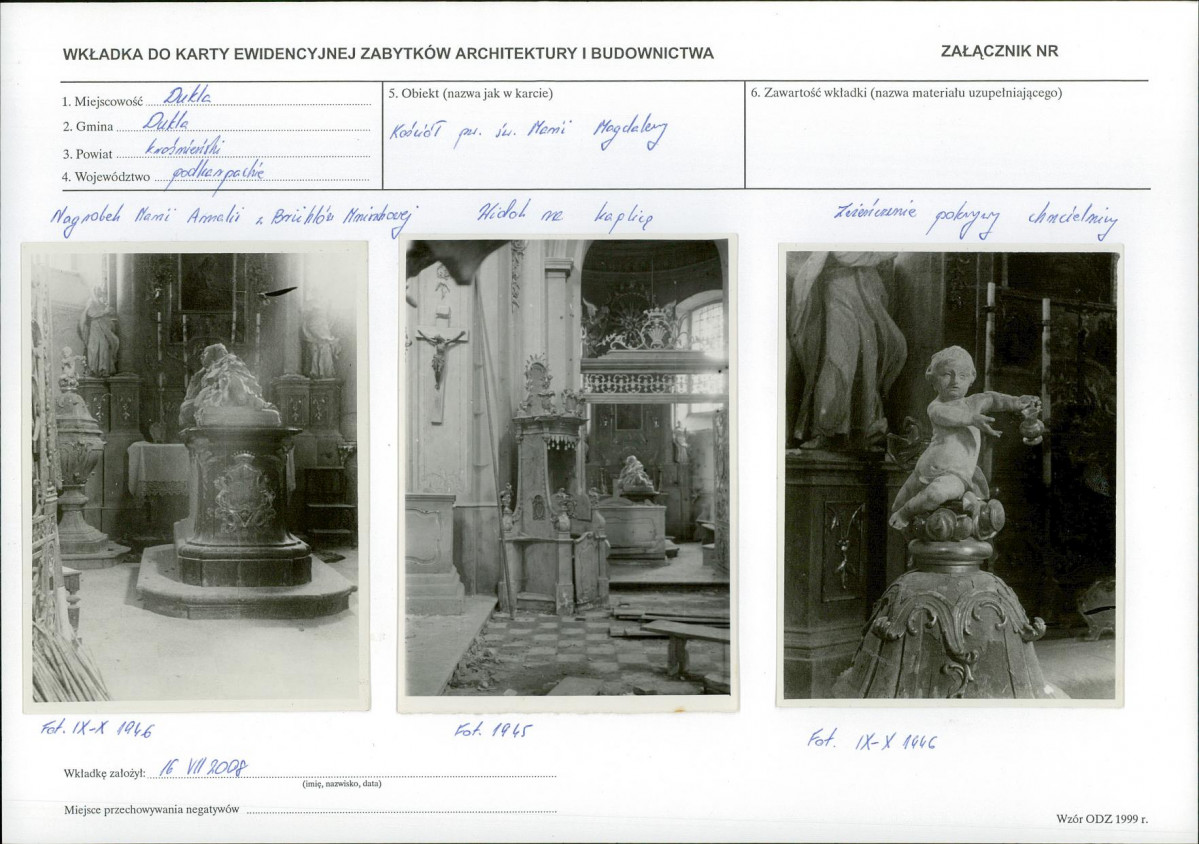 WKŁADKA DO KARTY EWIDENCYJNEJ ZABYTKÓW ARCHITEKTURY I BUDOWNICTWA
ZAŁĄCZNIK NR
1. Miejscowość Dukla
2. Gmina Dukla
3. Powiat krośnieński
4. Województwo podkarpackie
5. Obiekt (nazwa jak w karcie)
Kościół pw. św. Marii Magdaleny
6. Zawartość wkładki (nazwa materiału uzupełniającego)
Nagrobek Marii Amalii z Brühlów Mniszchowej
Widok na kaplicę
Zwieńczenie pokrywy chrzcielnicy
Fot. IX-X 1946
Fot. 1945
Fot. IX-X 1946
Wkładkę założył: 16 VII 2008
(imię, nazwisko, data)
Miejsce przechowywania negatywów
Wzór ODZ 1999 r.